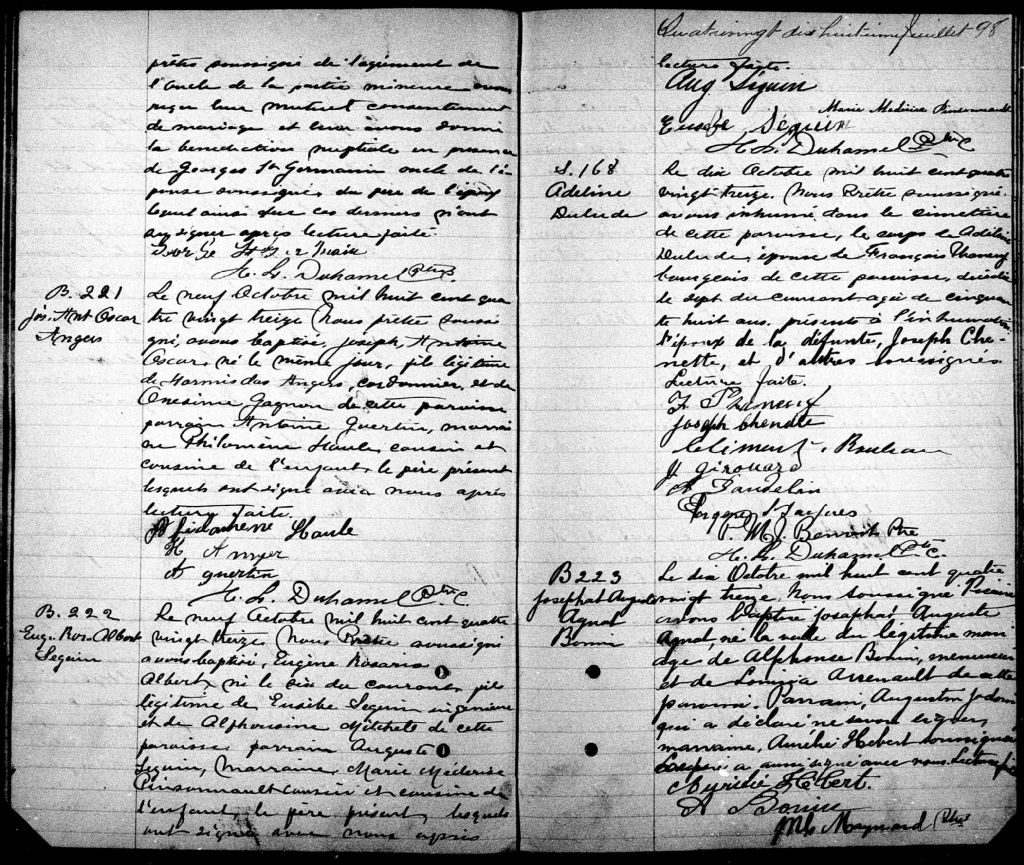 prêtre soussigné de l'agrément de
l'oncle de la partie mineure avons
reçu leur mutuel consentement
de mariage et leur avons donné
la bénédiction nuptiale en présence
de Georges St Germain oncle de l'é
pouse soussigné, du père de l'époux
lequel ainsi que ces derniers n'ont
su signer après lecture faite.
H. L. Duhamel Ptre
B. 221
Jos. Ant Oscar
Angers
Le neuf Octobre mil huit cent qua
tre vingt treize Nous prêtre soussi
gné, avons baptisé, Joseph, Antoine
Oscar, né le même jour, fils légitime
de Hormisdas Angers, cordonnier, et de
Onésime Gagnon de cette paroisse
parrain Antoine Guertin, marrai
ne Philomène Houle, cousin et
cousine de l'enfant, le père présent
lesquels ont signé avec nous après
lecture faite.
Philomène Houle
H Angers
A guertin
H. L. Duhamel Ptre C.
B. 222
Eug. Ros. Albert
Seguin
Le neuf Octobre mil huit cent quatre
vingt treize Nous Prêtre soussigné
avons baptisé, Eugène Rosario
Albert, né le six du courant, fils
légitime de Eusèbe Seguin ingénieur
et de Alphonsine Mitchels de cette
paroisse parrain Auguste
Seguin, Marraine, Marie Méderise
Pinsonnault cousin et cousine de
l'enfant, le père présent, lesquels
ont signé avec nous après
Quatrevingt dix huitième feuillet 98
lecture faite.
Aug Séguin
Marie Medérise Pinsonnault
Eusèbe Séguin
H. L. Duhamel Ptre C
S. 168
Adéline
Dulude
Le dix Octobre mil huit cent quatre
vingt treize. Nous Prêtre soussigné
avons inhumé dans le cimetière
de cette paroisse, le corps de Adéline
Dulude, épouse de François Phaneuf
bourgeois de cette paroisse, décédée
le sept du courant agée de cinquan
te huit ans. présents à l'inhumation
l'époux de la défunte, Joseph Che-
nette, et d'autres soussignés
Lecture faite.
F. Phaneuf
Joseph Chenette
Cléments. Rouleau
J Girouard
A Gaudelin
St Jacques
P. M. J. Benoit Ptre
H. L. Duhamel Ptre C.
B 223
Josephat Auguste
Agnat
Bonin
Le dix Octobre mil huit cent quatre
vingt treize, Nous soussigné Vicaire
avons baptisé Josephat Auguste
Agnat, né la veille du légitime mari
age de Alphonse Bonin, menuisier
et de Louisia Arsenault de cette
paroisse. Parrain, Augustin Jodoin
qui a déclaré ne savoir signer,
marraine, Aurélie Hebert soussignée
a aussi signé avec nous. Lecture f
Aurélie Hébert.
A Bonin
Maynard Ptre